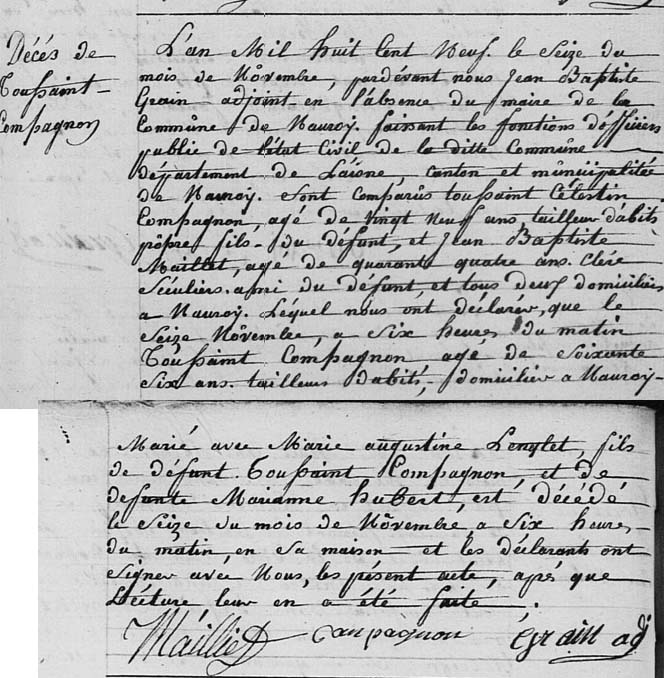 Décés de
Toussaint
Compagnon
L'an Mil huit Cent Neuf. le Seize du
mois de Nôvembre, pardevant nous Jean Baptiste
Grain adjoint en l'absence du maire de la
Commûne de Nauroy. faisant les fonctions d'officiers
public de l'état Civil de la ditte Commûne
département de Laisne, canton et mûnicipalitée
de Nauroy. Sont Comparûs toussaint Célestin
Compagnon, agé de Vingt Neuf ans, tailleur dabits
pôpre fils du défunt, et Jean Baptiste
Maillet, agé de quarante quatre ans. Clerc
Séculiers. ami du défunt, et tous deux domiciliés
a Nauroy. Léquel nous ont déclaréz, que le
Seize Nôvembre, a Six heures du matin
Toussaint Compagnon agé de Soixante
Six ans. tailleurs dabits, domiciliér a Nauroy
Marié avec Marie augustine Lenglet, fils
de défunt. Toussaint Compagnon, et de
defunte Marianne hubert, est décédé
le Seize du mois de Nôvembre, a Six heures
du matin, en Sa maison et les déclarants ont
Signer avec Nous, les présent acte, apré que
Lécture leur en a été faite.
Mailliet Canpagnon Grain adj